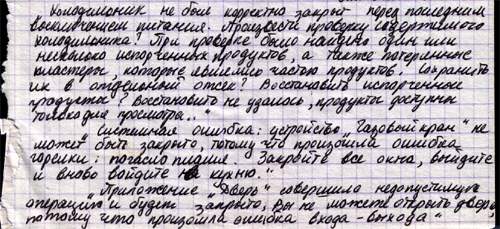 Холодильник не был корректно закрыт перед последним
выключением питания. Произвести проверку содержимого
холодильника? При проверке было найдено один или
несколько испорченных продуктов, а также потерянные
кластеры, которые явились частью продуктов. Сохранить
их в отдельный отсек? Восстановить испорченные
продукты? Восстановить не удалось, продукт доступны
только для просмотра.."
„Системная ошибка: устройство „Газовый кран" не
может быть закрыто, потому что произошла ошибка
горелки: погасло пламя. Закройте все окна, выйдите
и вновь войдите на кухню."
„Приложение „Дверь" совершило недопустимую
операцию и будет закрыто, Вы не можете открыть дверь,
потому что произошла ошибка входа-выхода"